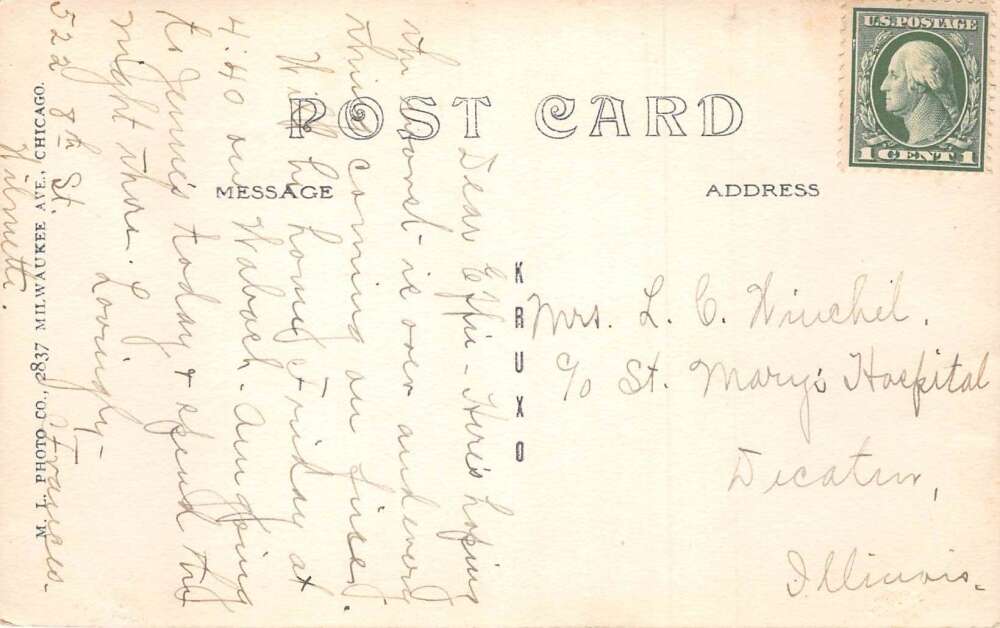 POST CARD
MESSAGE
ADDRESS
U.S. POSTAGE
1 CENT 1
Dear Effie - Here's hoping
the worst is over and every
thing coming on fine.
Will be home Friday at
4:40 on Wabash. Am going
to Jennie's today & spend the
night there. Lovingly-
Frances.
522 8th St.
Wilmette.
M. L. PHOTO CO., 2837 MILWAUKEE AVE., CHICAGO.
KRUXO
Mrs. L. C. Winchel.
c/o St. Mary's Hospital
Decatur,
Illinois.